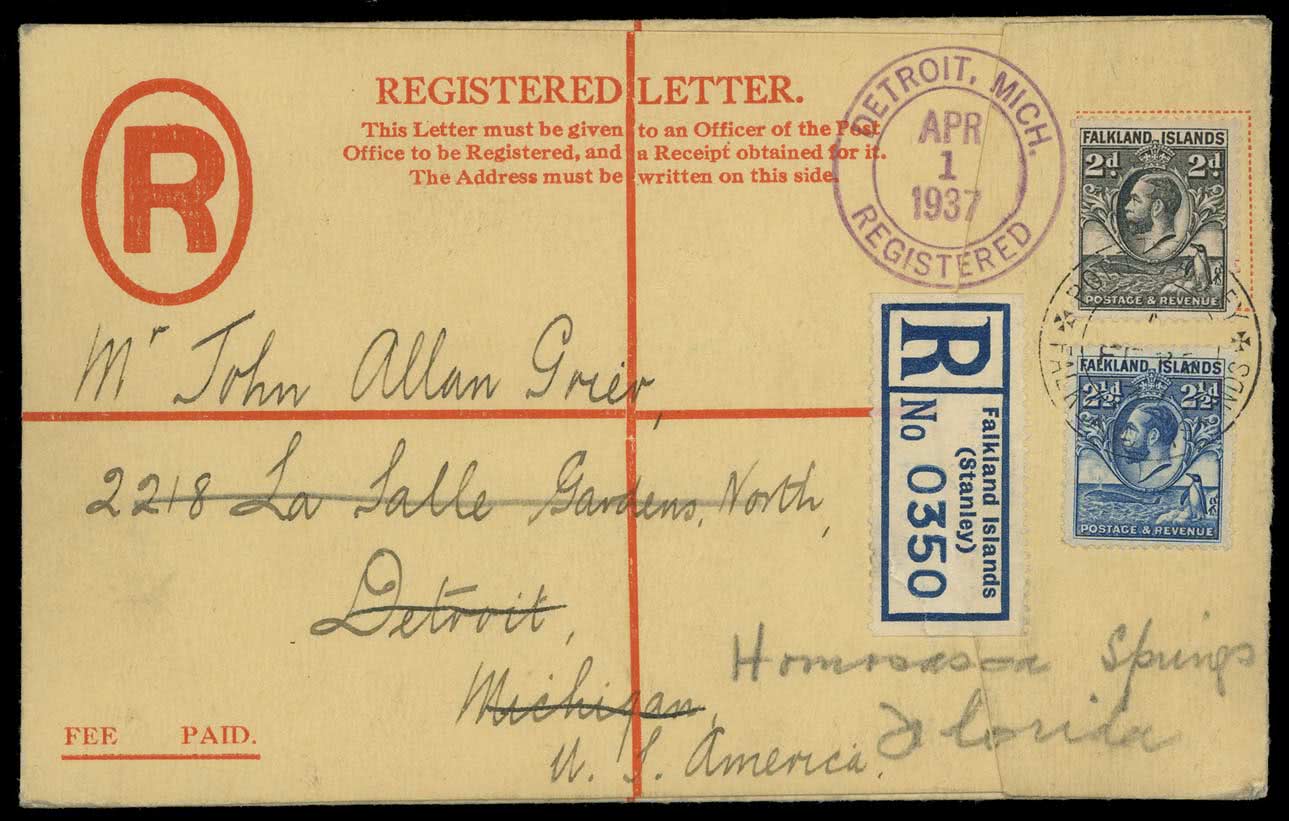 REGISTERED LETTER.
This Letter must be given to an Officer of the Post
Office to be Registered, and a Receipt obtained for it.
The Address must be written on this side.
R
DETROIT, MICH.
APR
1
1937
REGISTERED
FALKLAND ISLANDS
2d 2d
POSTAGE & REVENUE
FALKLAND ISLANDS
2½d 2½d
POSTAGE & REVENUE
R
Falkland Islands
(Stanley)
No 0350
Mr John Allan Grier,
2218 La Salle Gardens, North,
Detroit,
Michigan,
U. S. America.
Homosassa Springs
Florida
FEE PAID.